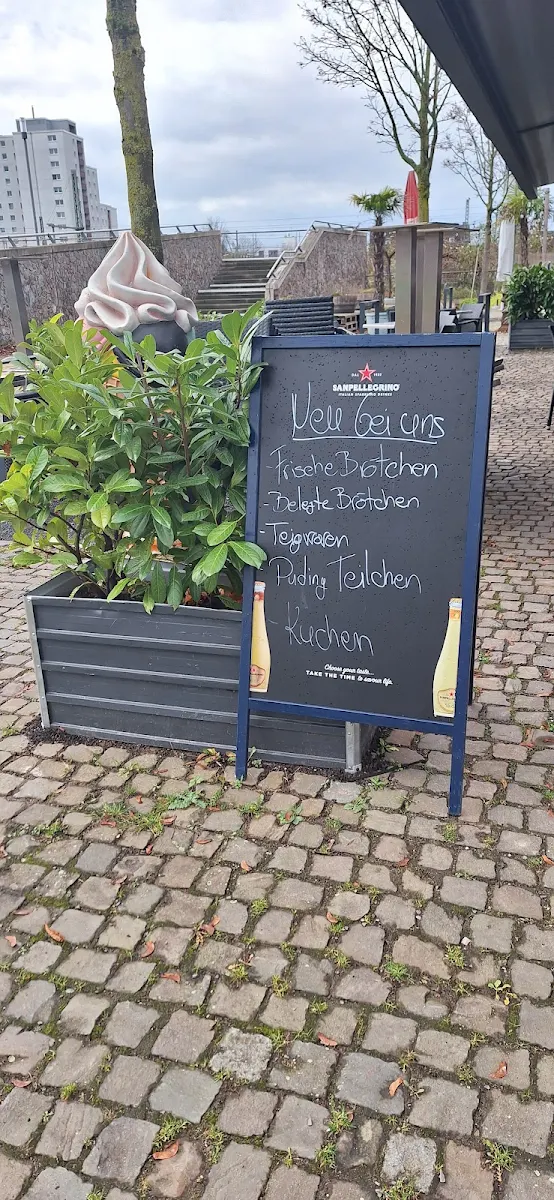 SANPELLEGRINO
Neu bei uns
- Frische Brötchen
- Belegte Brötchen
- Teigwaren
Puding Teilchen
- Kuchen
Choose your taste...
TAKE THE TIME to savour life.